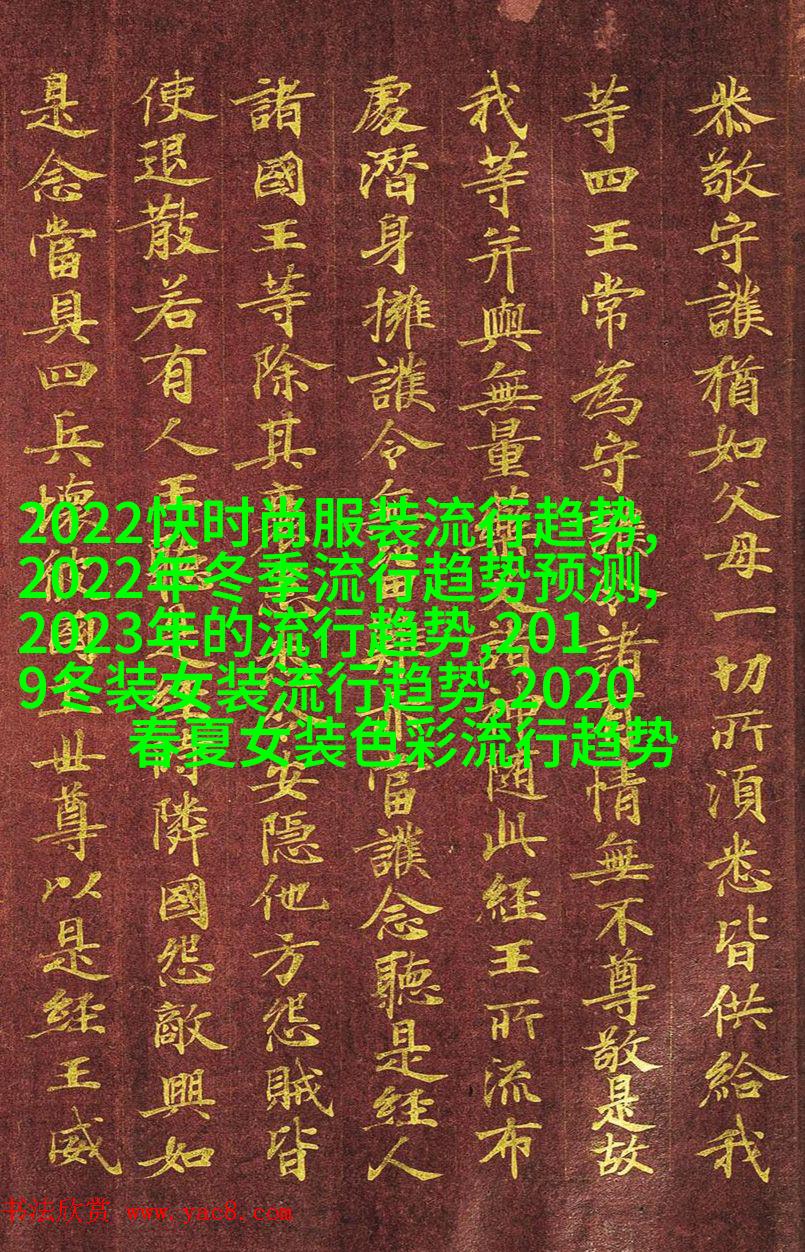 恭敬守護猶如父母一切所須悉皆供給我
等四王常為守護令諸有情無不尊敬是故
我等并與無量藥叉諸神随此經王所流布
處潛身擁護令無留難亦當護念聽是經人
諸國王等除其衰患悉令安隱他方怨賊皆
使退散若有人王聽是經時隣國怨敵興如
是念當具四兵壞彼國土世尊以是經王威
2022快时尚服装流行趋势,
2022年冬季流行趋势预测,
2023年的流行趋势,201
9冬装女装流行趋势,2020
春夏女装色彩流行趋势
书法欣赏 www.yac8.com